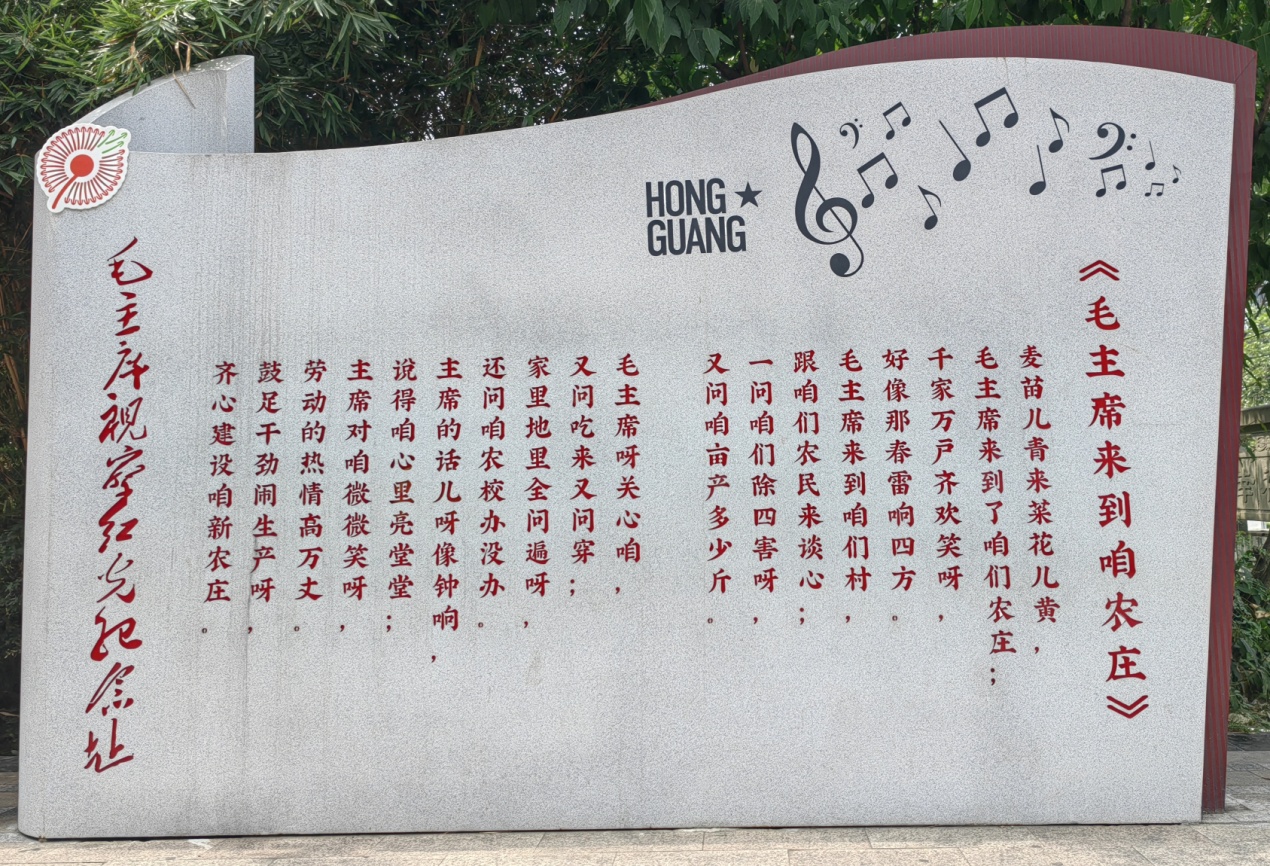 《毛主席来到咱农庄》
麦苗儿青来菜花儿黄，
毛主席来到了咱们农庄；
千家万户齐欢笑呀，
好像那春雷响四方。
毛主席来到咱们村，
跟咱们农民来谈心；
一问咱们除四害呀，
又问咱亩产多少斤。
毛主席呀关心咱，
又问吃来又问穿；
家里地里全问遍呀，
还问咱农校办没办。
主席的话儿呀像钟响，
说得咱心里亮堂堂；
主席对咱微微笑呀，
劳动的热情高万丈。
鼓足干劲闹生产呀，
齐心建设咱新农庄。
毛主席视察红光纪念址
HONG
GUANG